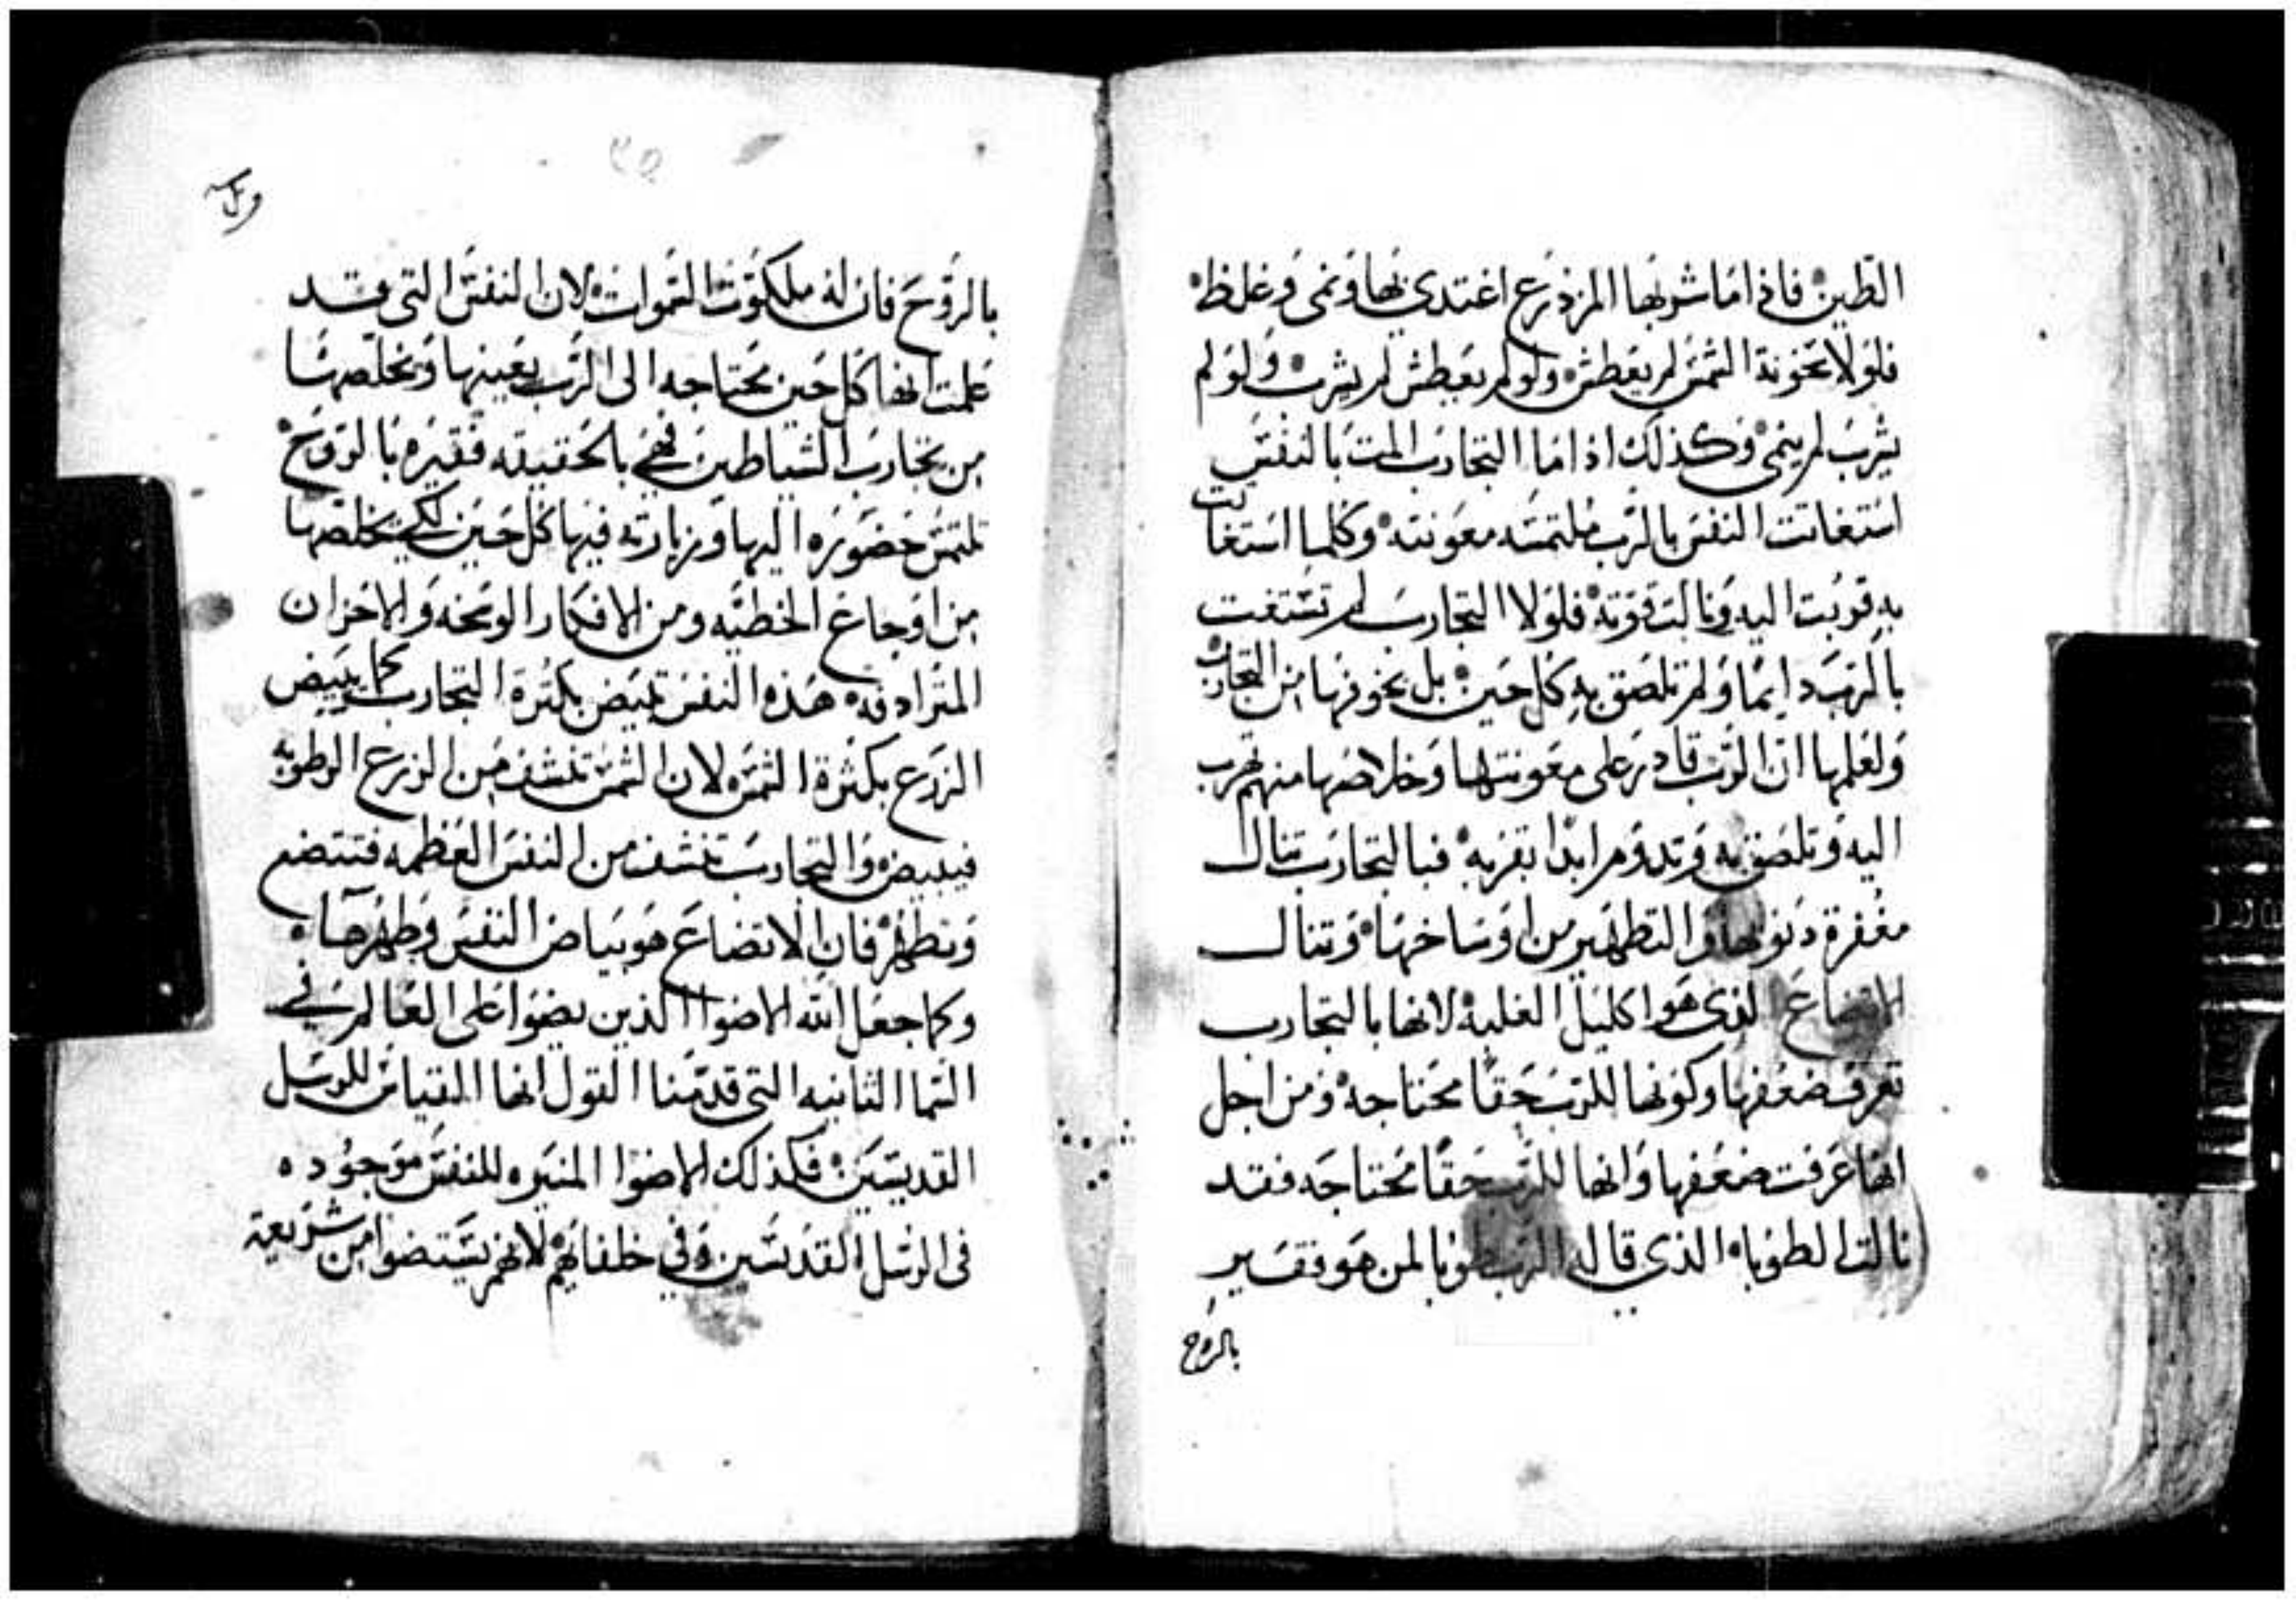 الطين فاذا ما شربها المزدرع اغتدي بها ونمى وغلظ
فلولا سخونة الشمس لم يعطش ولو لم يعطش لم يشرب ولو لم
يشرب لم ينمى وكذلك اذا ما التجارب المت بالنفس
استغاتت النفس بالرب ملتمسه معونته وكلما استغاتت
به قربت اليه ونالت قوته فلولا التجارب لم تستغت
بالرب دايما ولم تلصق به كل حين بل بخوفها من التجارب
ولعلمها ان الرب قادر على معونتها وخلاصها منهم تهرب
اليه وتلصق به وتدوم ابدا بقربه فبالتجارب تنال
مغفرة دنوبها والتطهير من اوساخها وتنال
الاتضاع الدى هو اكليل الغلبه لانها بالتجارب
تعرف ضعفها وكونها للرب حقا محتاجه ومن اجل
انها عرفت ضعفها وانها للرب حقا محتاجه فقد
نالت الطوبا الذي قاله الرب طوبا لمن هو فقير
بالروح
بالروح فان له ملكوت السموات لان النفس التي قد
علمت انها كل حين محتاجه الى الرب يعينها ويخلصها
من تجارب الشياطين فهي بالحقيقه فقيره بالروح
تلتمس حضوره اليها وزيارته فيها كل حين لكي يخلصها
من اوجاع الخطيه ومن الافكار الوسخه والاحزان
المترادفه هذه النفس تبيض بكثرة التجارب كما يبيض
الزرع بكثرة الشمس لان الشمس تنشف من الزرع الرطوبه
فيبيض والتجارب تنشف من النفس العظمه فتتضع
وتطهر فان الاتضاع هو بياض النفس وطهرها
وكما جعل الله الاضوا الذين يضوا على العالم في
السما الثانيه التي قدمنا القول انها القياس للرسل
القديسين فكذلك الاضوا المنيره للنفس موجوده
في الرسل القديسين وفي خلفايهم لانهم يستضوا من شريعة